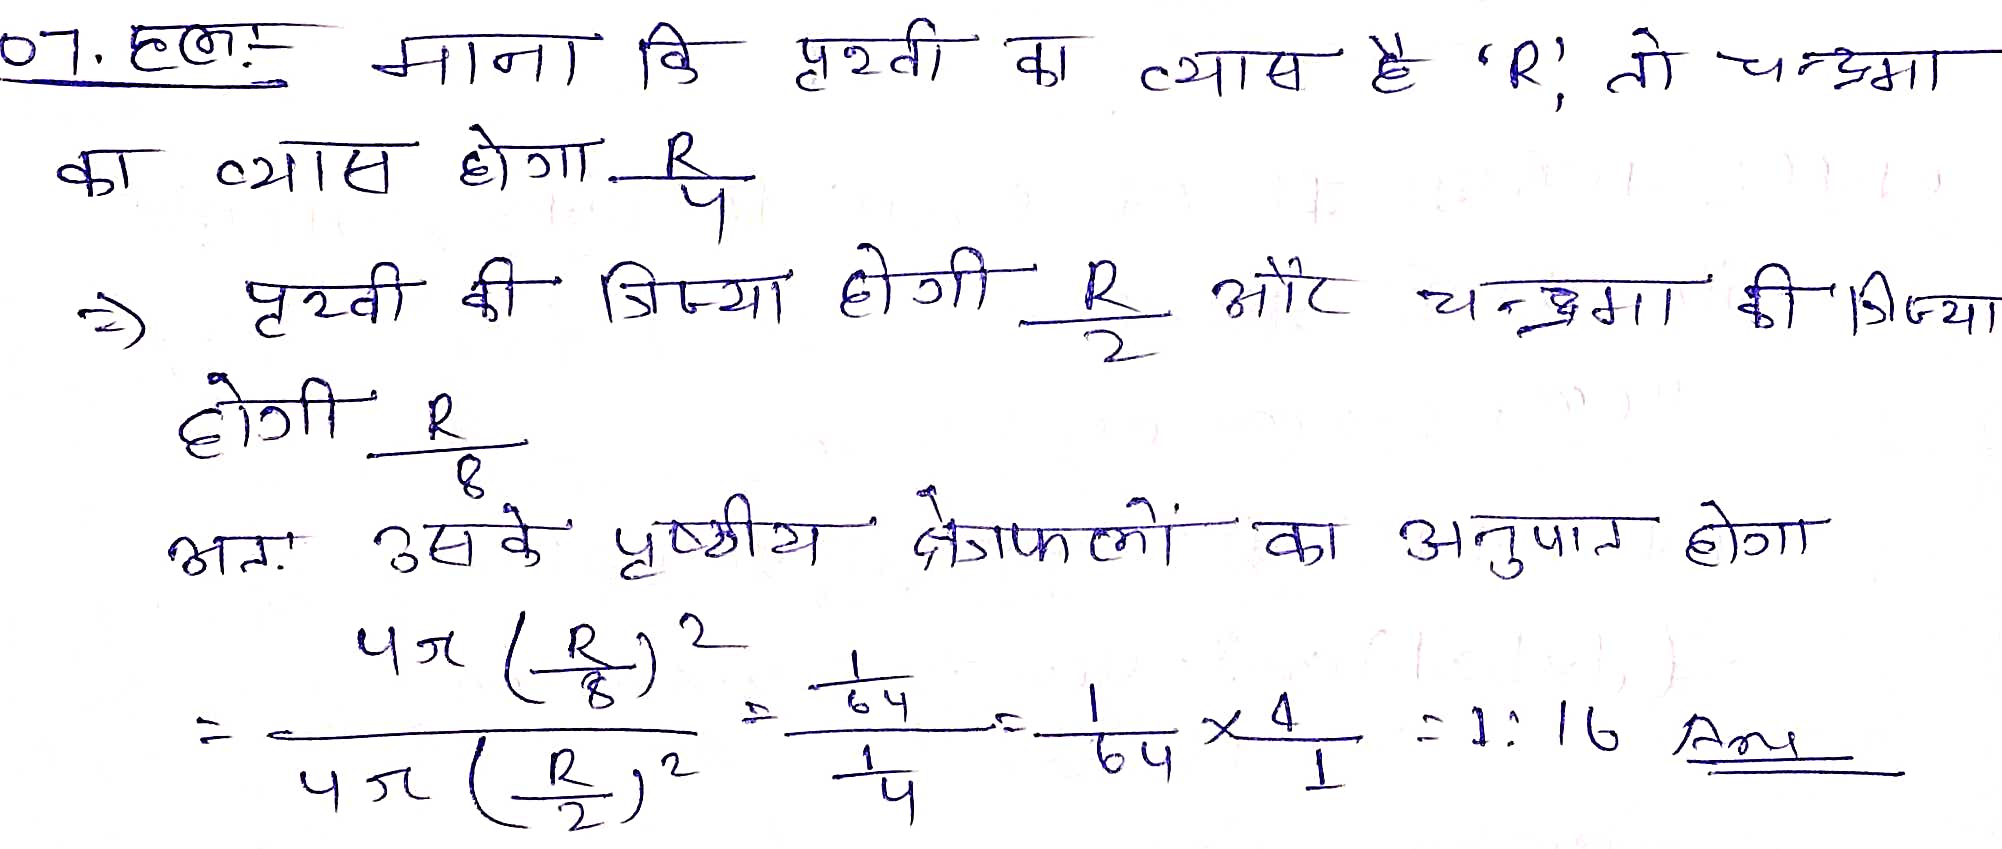 07. हल:- माना कि पृथ्वी का व्यास है 'R', तो चन्द्रमा
का व्यास होगा R/4
=> पृथ्वी की त्रिज्या होगी R/2 और चन्द्रमा की त्रिज्या
होगी R/8
अतः उसके पृष्ठीय क्षेत्रफलों का अनुपात होगा
= 4π(R/8)² / 4π(R/2)² = (1/64) / (1/4) = 1/64 × 4/1 = 1:16 Ans